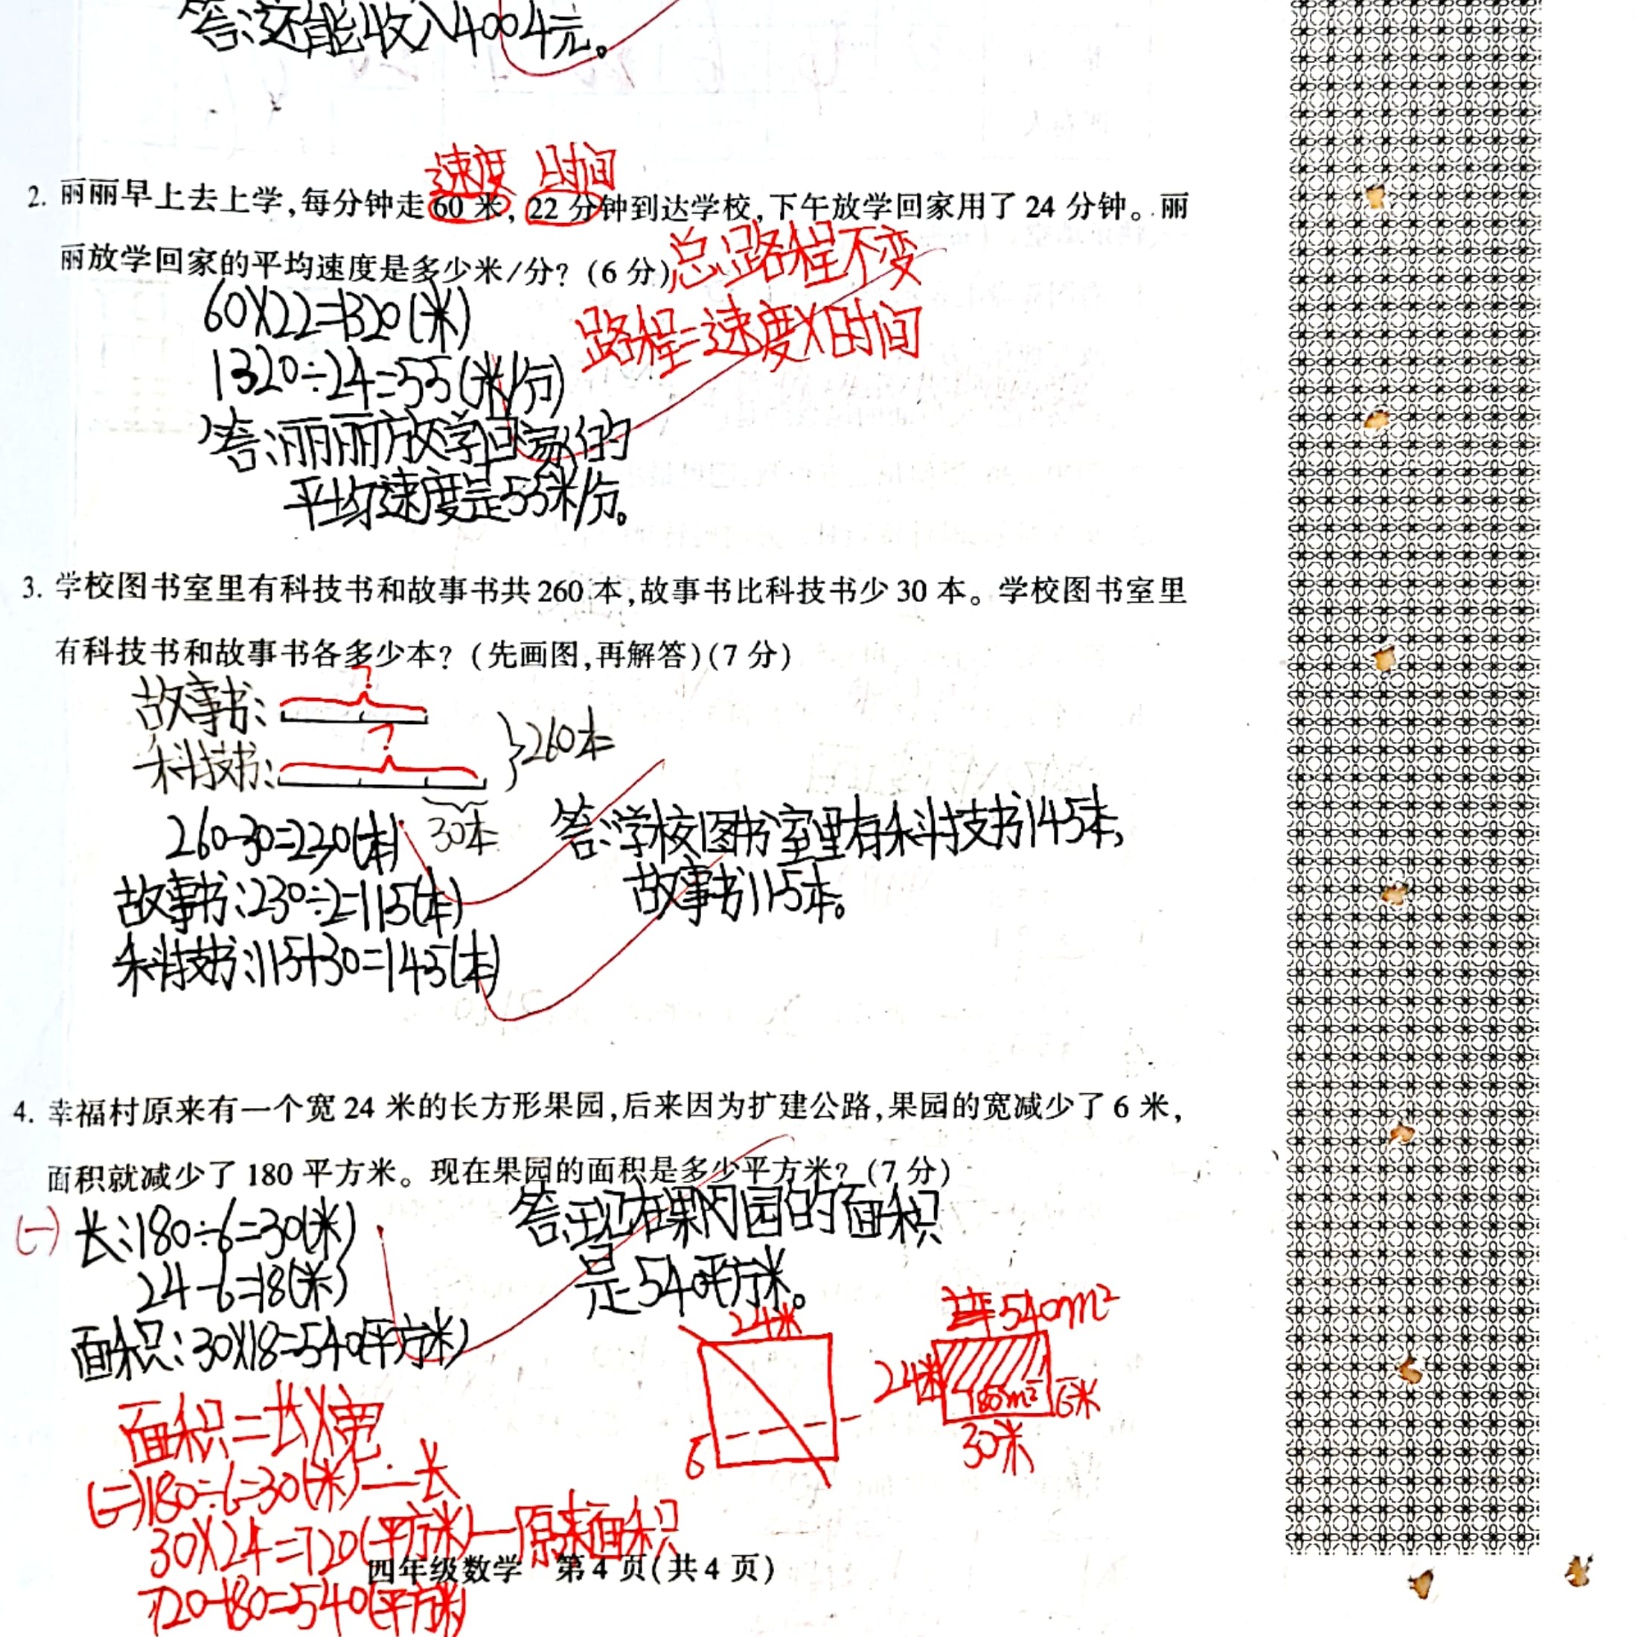 答:还能收入4004元。
速度 时间
2. 丽丽早上去上学,每分钟走60米,22分钟到达学校,下午放学回家用了24分钟。丽
丽放学回家的平均速度是多少米/分?(6分)
总路程不变
60×22=1320(米)
路程=速度×时间
1320÷24=55(米/分)
答:丽丽放学回家的
平均速度是55米/分。
3. 学校图书室里有科技书和故事书共260本,故事书比科技书少30本。学校图书室里
有科技书和故事书各多少本?(先画图,再解答)(7分)
?
故事书:
?
科技书:
}260本
30本
260-30=230(本)
故事书:230÷2=115(本)
科技书:115+30=145(本)
答:学校图书室里有科技书145本,
故事书115本。
4. 幸福村原来有一个宽24米的长方形果园,后来因为扩建公路,果园的宽减少了6米,
面积就减少了180平方米。现在果园的面积是多少平方米?(7分)
(一)长:180÷6=30(米)
24-6=18(米)
面积:30×18=540(平方米)
答:现在果园的面积
是540平方米。
24米
6
540m²
24米
180m²
6米
30米
面积=长×宽
(二)180÷6=30(米)—长
30×24=720(平方米)—原来面积
720-180=540(平方米)
四年级数学 第4页(共4页)